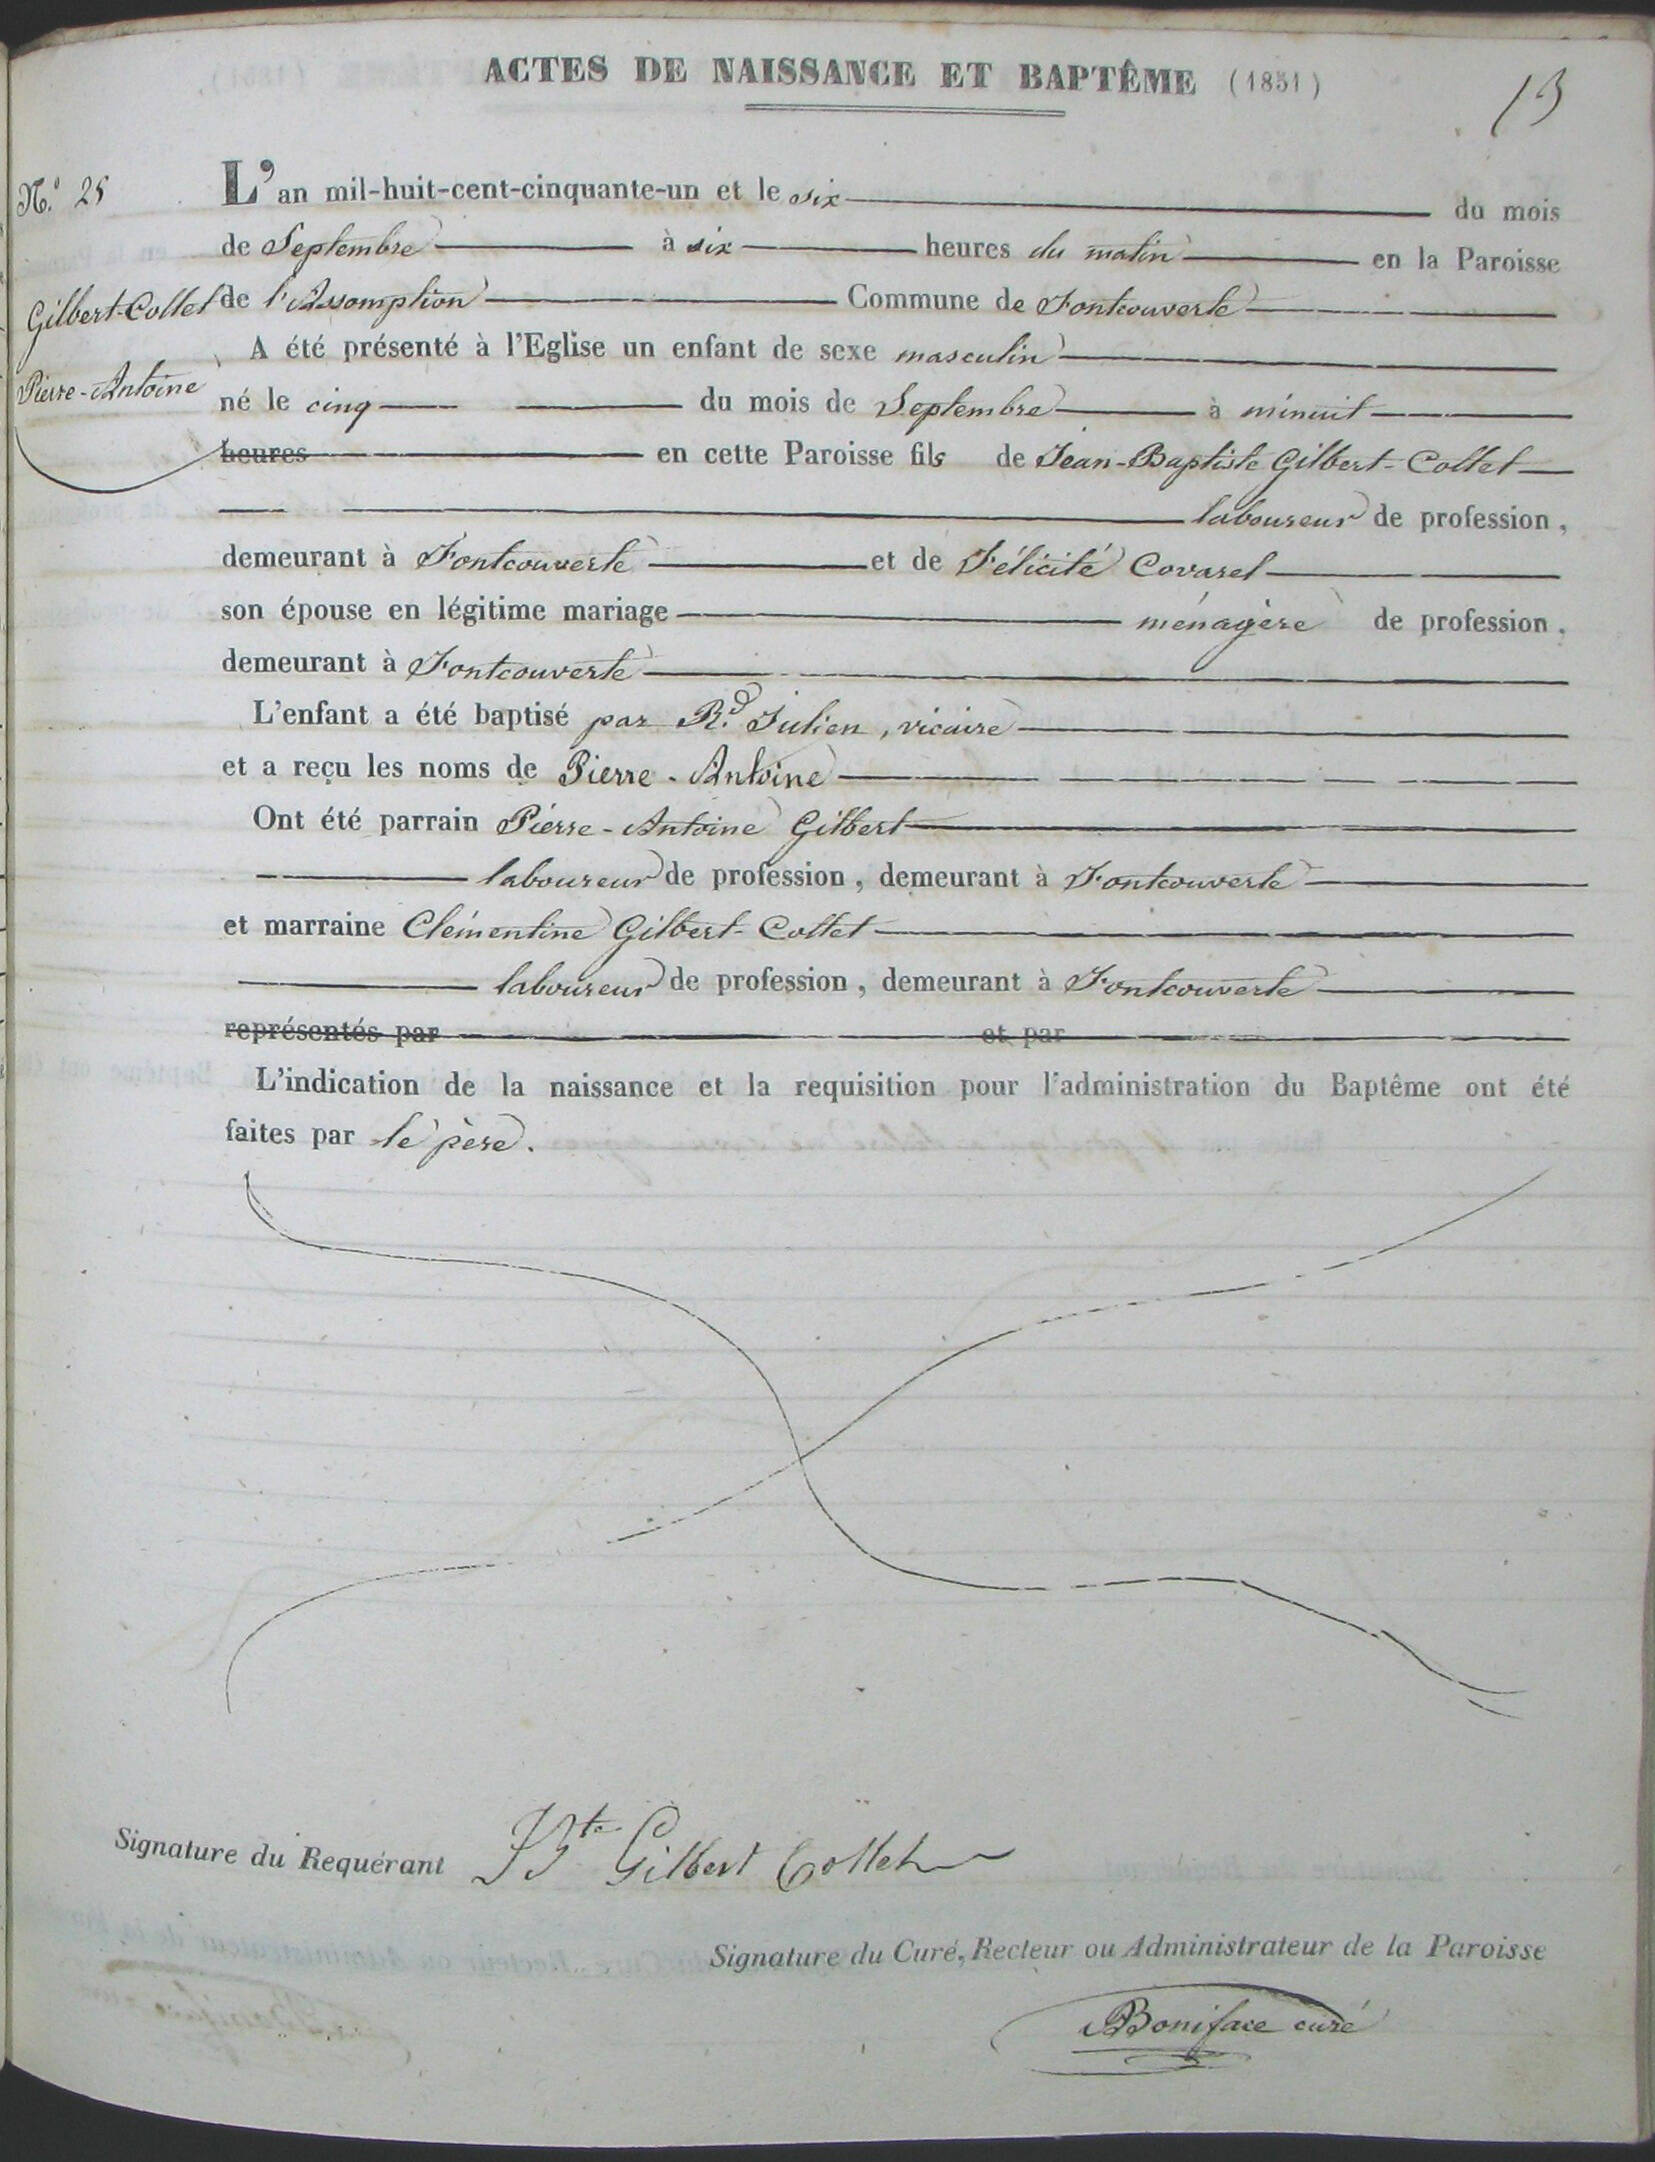 ACTES DE NAISSANCE ET BAPTÊME (1851)
13
N.° 25
Gilbert-Collet
Pierre-Antoine
L'an mil-huit-cent-cinquante-un et le six du mois
de Septembre à six heures du matin en la Paroisse
de l'Assomption Commune de Fontcouverte
A été présenté à l'Eglise un enfant de sexe masculin
né le cinq du mois de Septembre à minuit
heures en cette Paroisse fils de Jean-Baptiste Gilbert-Collet
laboureur de profession,
demeurant à Fontcouverte et de Félicité Covarel
son épouse en légitime mariage ménagère de profession,
demeurant à Fontcouverte
L'enfant a été baptisé par R.d Julien, vicaire
et a reçu les noms de Pierre-Antoine
Ont été parrain Pierre-Antoine Gilbert
laboureur de profession, demeurant à Fontcouverte
et marraine Clémentine Gilbert-Collet
laboureur de profession, demeurant à Fontcouverte
représentés par et par
L'indication de la naissance et la requisition pour l'administration du Baptême ont été
faites par le père.
Signature du Requérant JBte Gilbert Collet
Signature du Curé, Recteur ou Administrateur de la Paroisse
Boniface curé